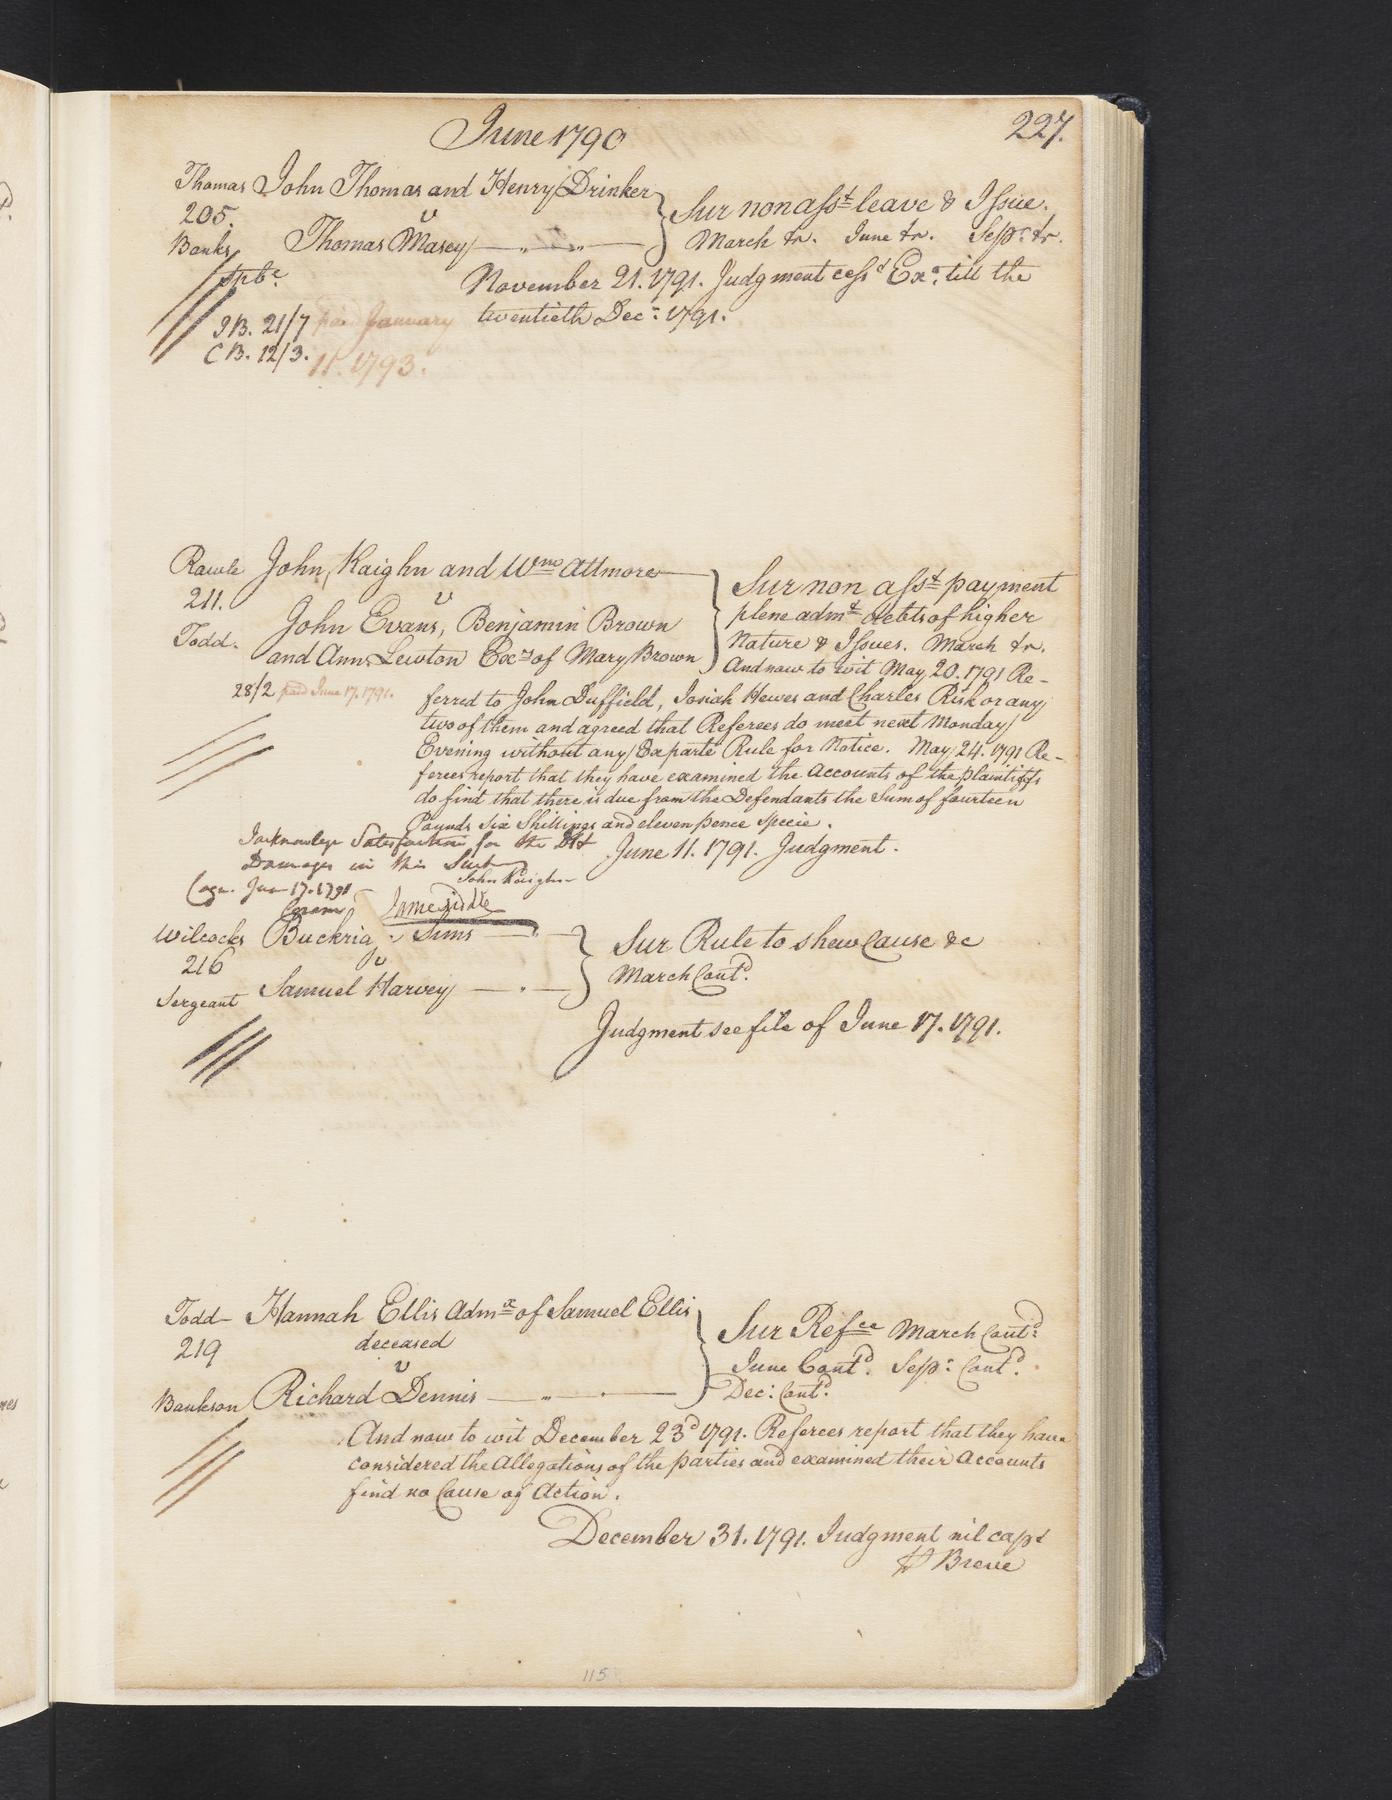 June 1790
227.
Thomas John Thomas and Henry Drinker
205. v
Banks Thomas Masey
Sur non asst leave & Issue.
March tr. June tr. Sepr. tr.
Spbe.
November 21. 1791. Judgment cessd Exn. till the
twentieth Decr. 1791.
JB. 21/7 paid January
CB. 12/3. 11. 1793.
Rawle John Kaighn and Wm Attmore
211. v
John Evans, Benjamin Brown
Todd.
and Ann Lewton Exrs of Mary Brown
Sur non asst payment
plene admt debts of higher
Nature & Issues. March tr.
And now to wit May 20. 1791 Re-
28/2 paid June 17. 1791.
ferred to John Duffield, Josiah Hewes and Charles Risk or any
two of them and agreed that Referees do meet next Monday
Evening without any Exparte Rule for Notice. May 24. 1791 Re-
ferees report that they have examined the Accounts of the plaintiffs
do find that there is due from the Defendants the Sum of fourteen
Pounds six Shillings and eleven pence specie.
June 11. 1791. Judgment.
I acknowlege Satisfaction for the Dbt
Damages in this Suit
John Kaighn
Cogn. Jun 17. 1791
Coram James Biddle
Wilcocks Buckrig Sims
216 v
Sergeant Samuel Harvey
Sur Rule to shew Cause &c
March Contd.
Judgment see file of June 17. 1791.
Todd Hannah Ellis Admx of Samuel Ellis
219 deceased
v
Bankson Richard Dennis
Sur Refce March Contd.
June Contd. Sepr. Contd.
Dec: Contd.
And now to wit December 23d 1791. Referees report that they have
considered the Allegations of the parties and examined their Accounts
find no Cause of Action.
December 31. 1791. Judgment nil capt
p Breve
115